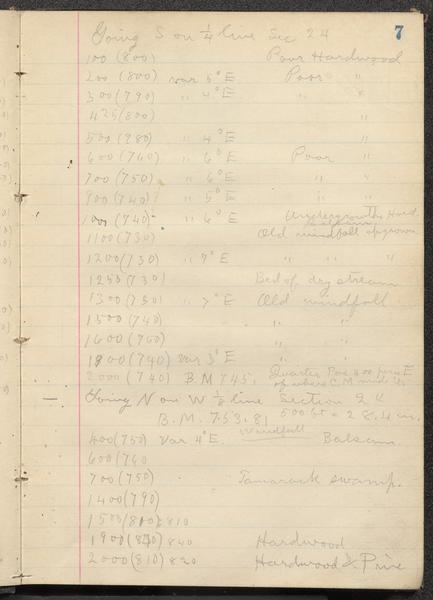 7
Going S on 1/4 line Sec 24
100 (800) Poor Hardwood
200 (800) var 5° E Poor "
300 (790) " 4° E " "
425 (800) "
500 (780) " 4° E "
600 (760) " 6° E Poor "
700 (750) " 6° E " "
900 (740) " 5° E " "
1000 (740) " 6° E Undergrowth Hard.
1100 (730) Old windfall
1200 (730) " 7° E " " "
1250 (730) Bed of dry stream
1300 (750) " 7° E Old windfall
1500 (740) " "
1600 (760) " "
1900 (740) var 3° E " "
2000 (740) B.M 745. Quarter Post E
of where
Going N on W 1/8 line Section 24
B.M. 753.81 500 ft = 28.4 in.
Windfall
400 (750) Var 4° E. Balsam.
600 (760
700 (750) Tamarack swamp.
1400 (790)
1500 (810) 810
1900 (840) 840 Hardwood
2000 (810) 820 Hardwood & Pine